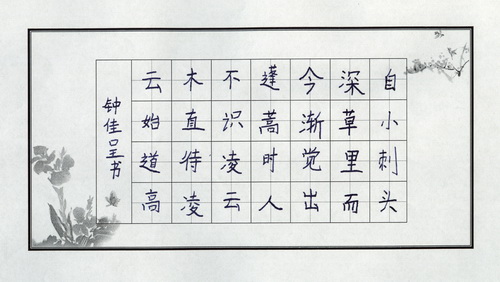 自小刺头
深草里而
今渐觉出
蓬蒿时人
不识凌云
木直待凌
云始道高
钟佳呈书